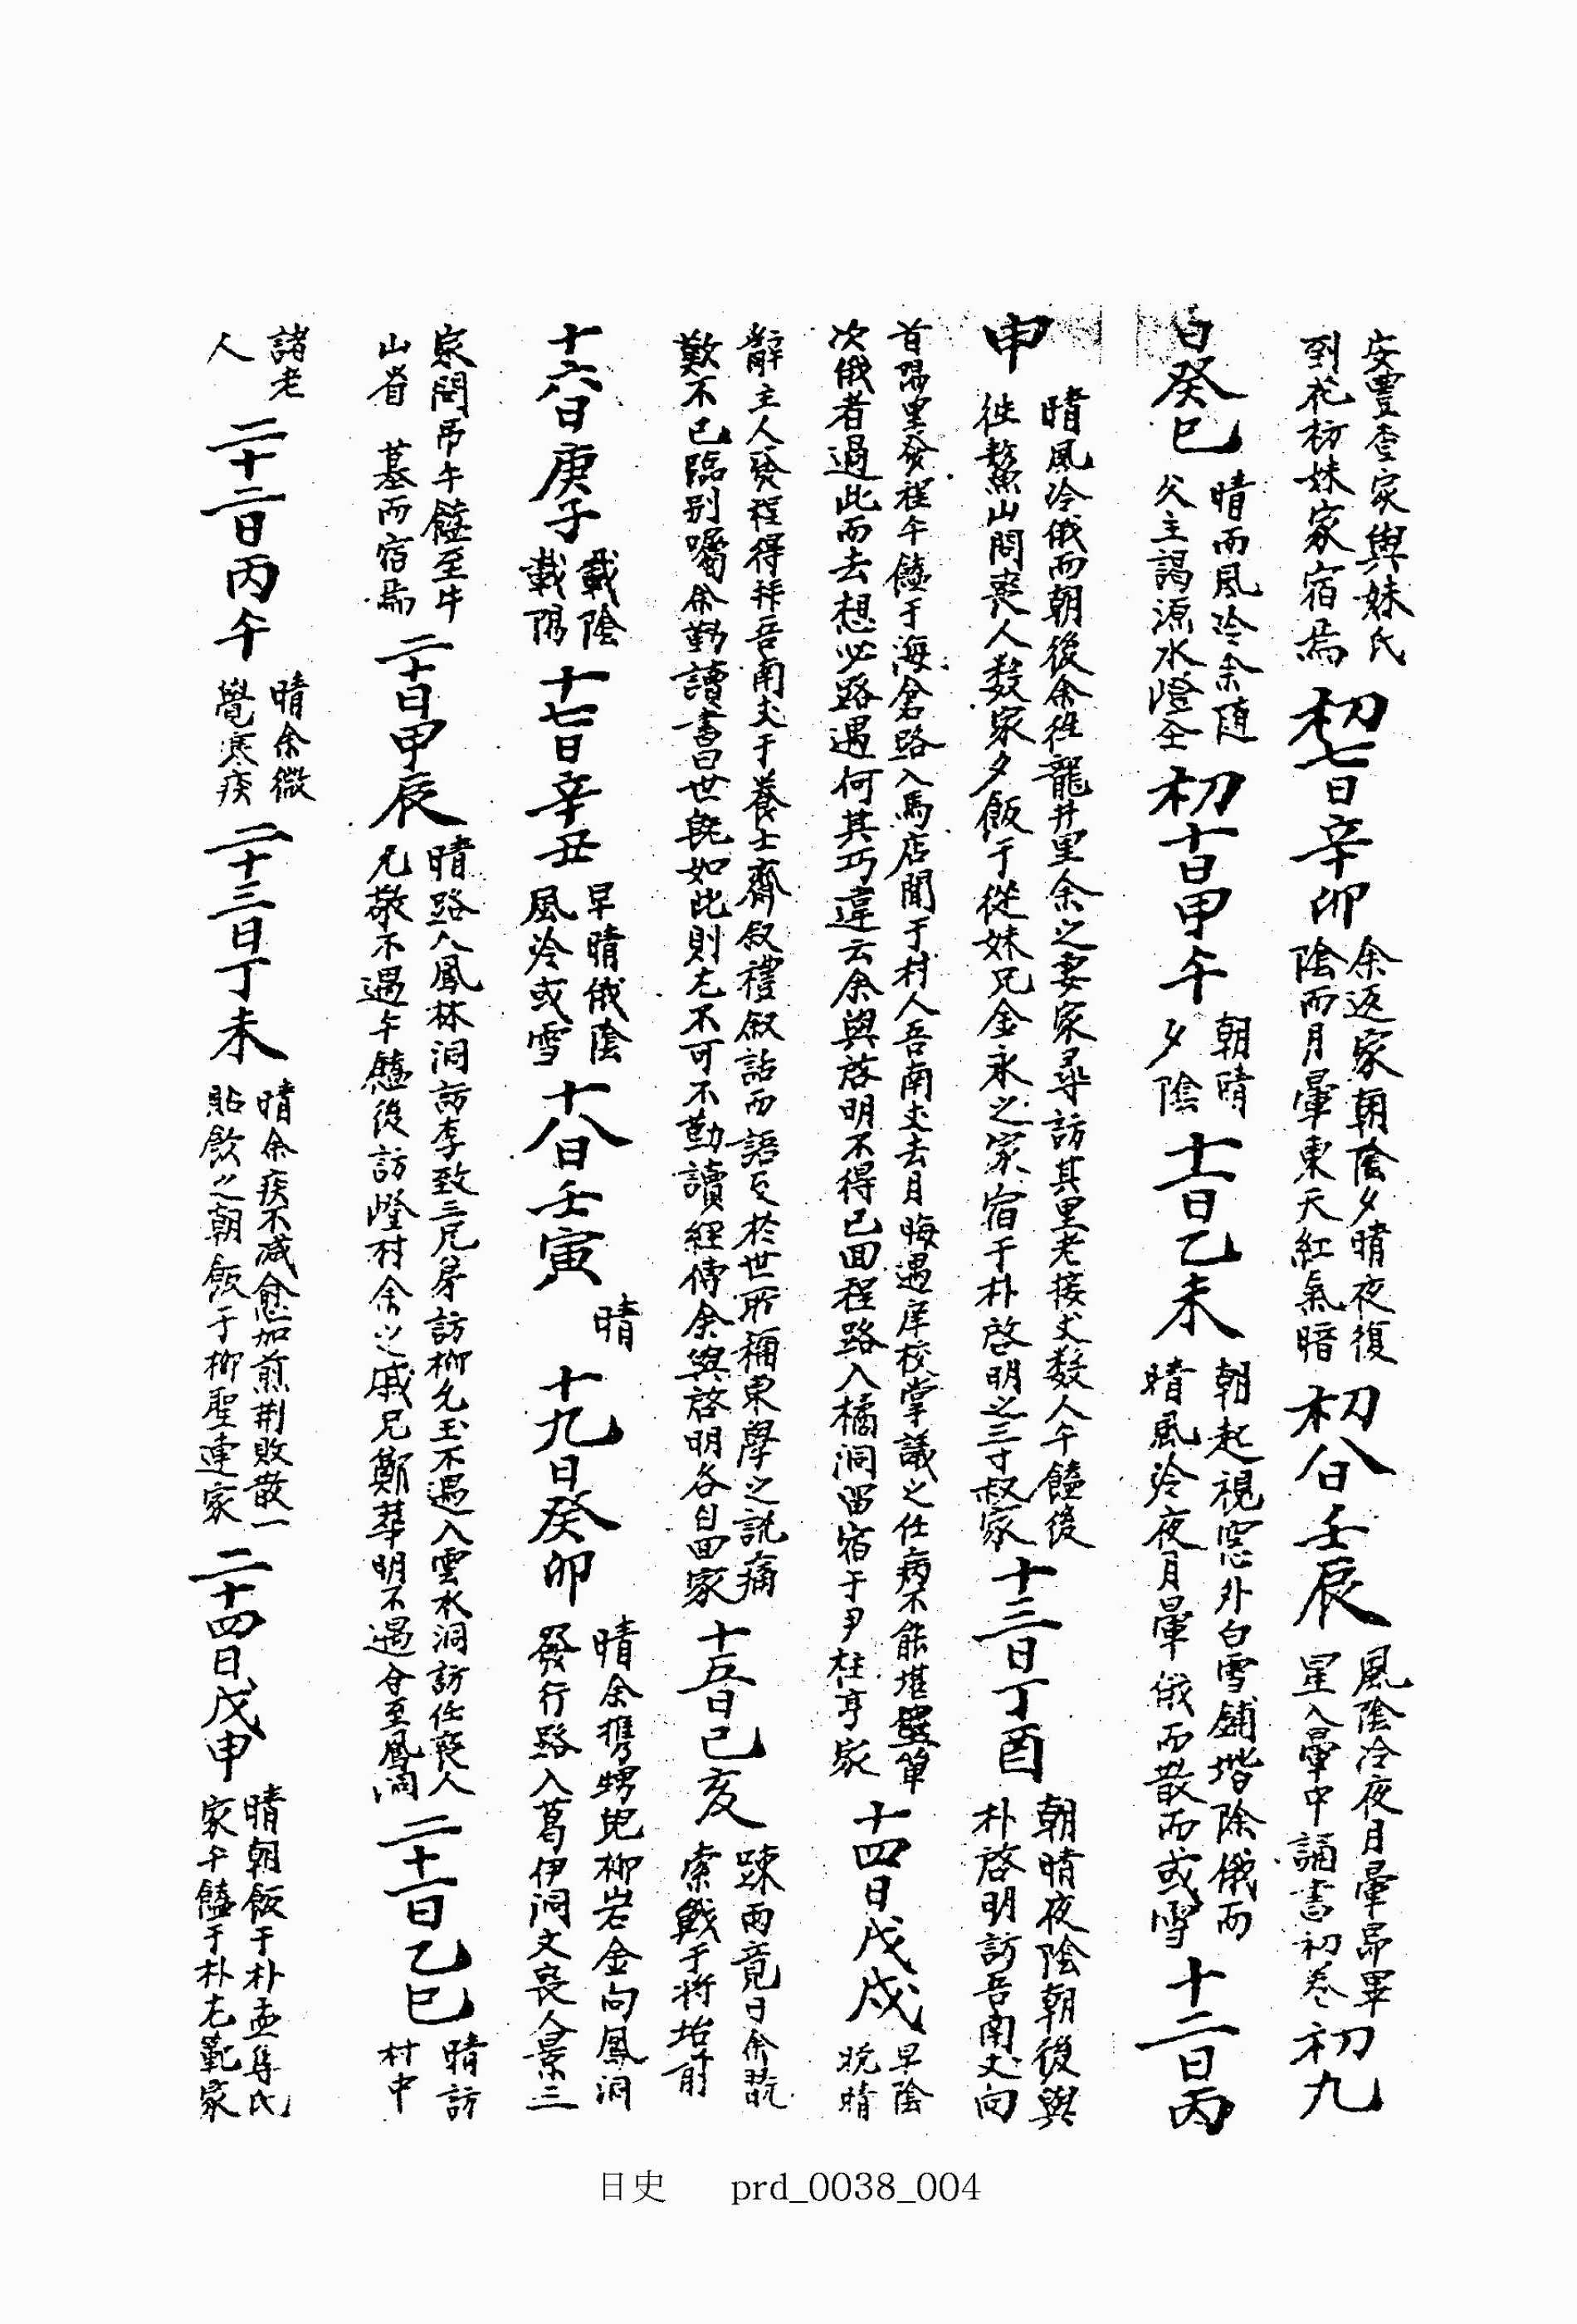 安豊查家與妹氏
到花枋妹家宿焉
初七日辛卯
余返家朝陰夕晴夜復
陰而月暈東天紅氣暗
初八日壬辰
風陰冷夜月暈昴畢
星入暈中誦書初卷
初九
日癸巳
晴而風冷余随
父主謁源水嶝仝
初十日甲午
朝晴
夕陰
十一日乙未
朝起視窓外白雪鋪堦除俄而
晴風冷夜月暈俄而散而或雪
十二日丙
申
晴風冷俄而朝後余徃龍井里余之妻家尋訪其里老接丈数人午饁後
徃鰲山問喪人数家夕飯于從妹兄金永之家宿于朴啓明之三寸叔家
十三日丁酉
朝晴夜陰朝後與
朴啓明訪吾南丈向
首陽里發程午饁于海倉路入馬店聞于村人吾南丈去月晦遇庠校掌議之任病不能堪單
次俄者過此而去想必路遇何其巧違云余與啓明不得已回程路入橘洞留宿于尹柱亨家
十四日戊戌
早陰
晩晴
辭主人發程得拜吾南丈于養士齋叙禮叙話而語及於世所稱東學之說痛
歎不已臨別囑余勤讀書曰世旣如此則尤不可不勤讀經傳余與啓明各自回家
十五日己亥
踈雨竟日余翫
索戰于將坮前
十六日庚子
載陰
載陽
十七日辛丑
早晴俄陰
風冷或雪
十八日壬寅
晴
十九日癸卯
晴余携甥兒柳岩金向鳳洞
發行路入葛伊洞文喪人景三
家問吊午饁至牛
山省 墓而宿焉
二十日甲辰
晴路入鳳林洞訪李致三兄弟訪柳允玉不遇入雲水洞訪任喪人
允敬不遇午饁後訪嶝村余之戚兄鄭華明不遇仝至鳳洞
二十一日乙巳
晴訪
村中
諸老
人
二十二日丙午
晴余微
覺寒疾
二十三日丁未
晴余疾不减愈加煎荆敗散一
貼飮之朝飯于柳聖連家
二十四日戊申
晴朝飯于朴孟隼氏
家午饁于朴尤範家
日史 prd_0038_004